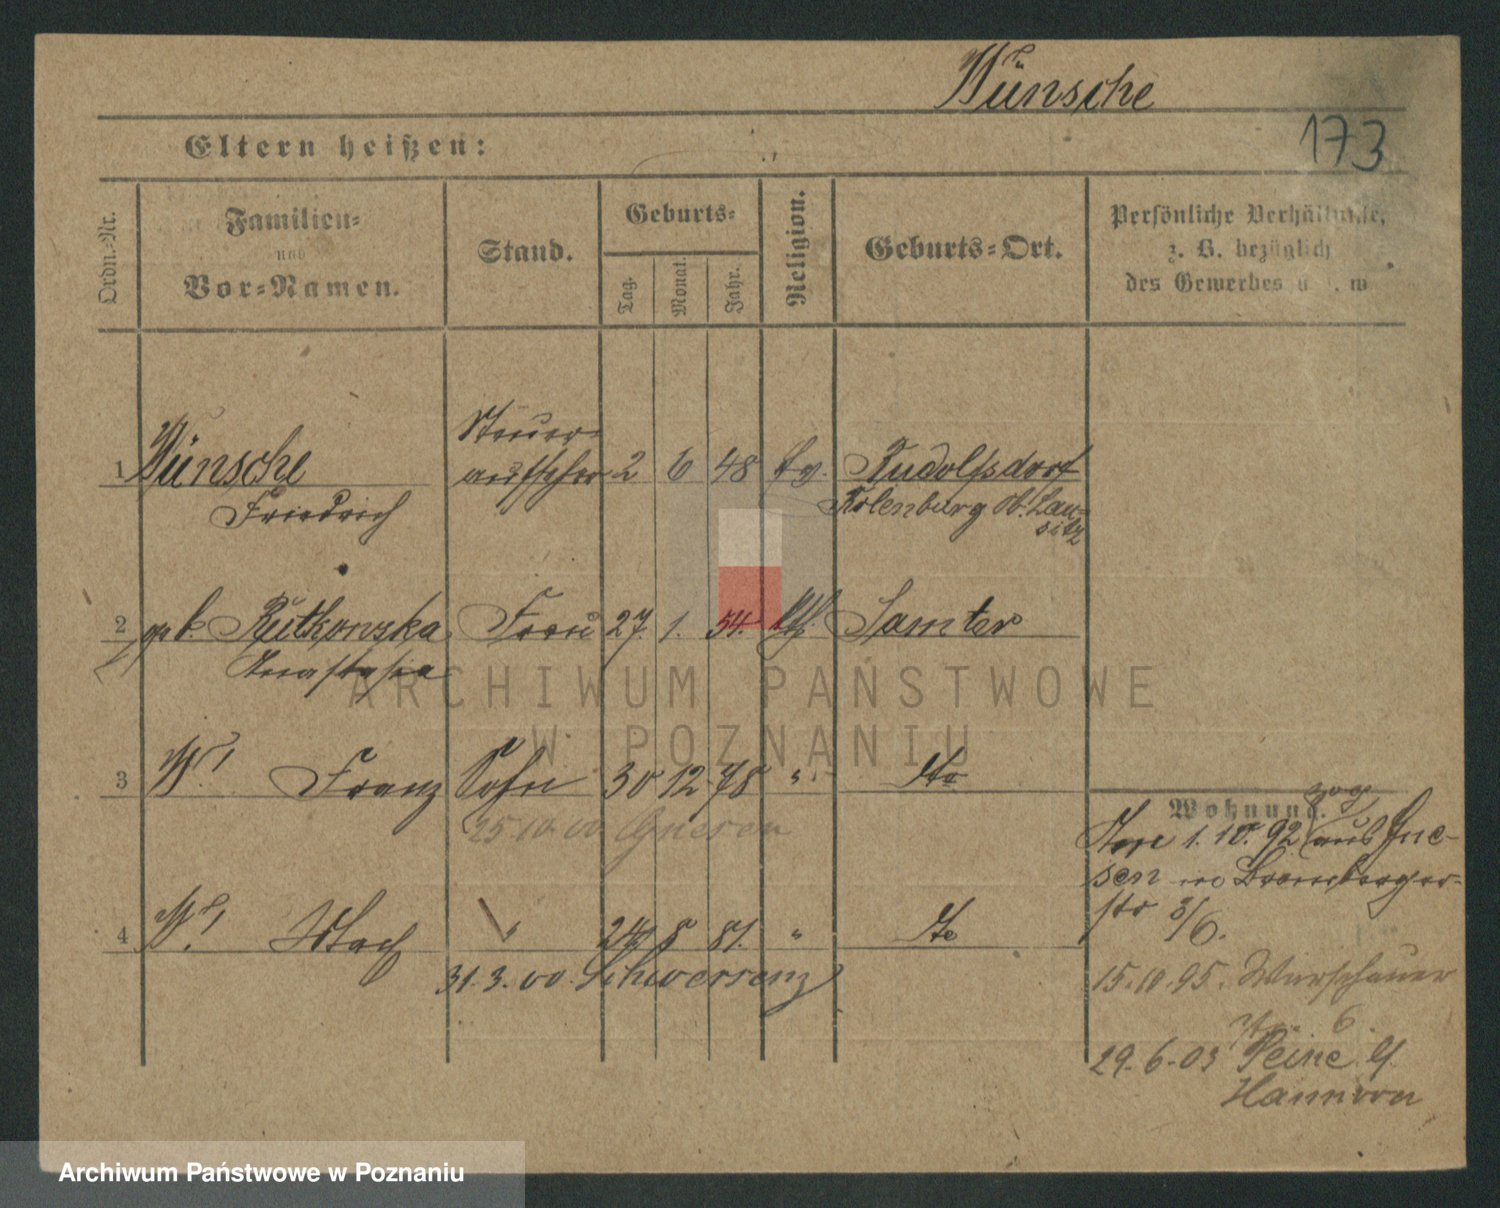 Wünsche
173
Eltern heißen:
Ordn.-Nr.
Familien-
und
Vor-Namen.
Stand.
Geburts-
Tag.
Monat.
Jahr.
Religion.
Geburts-Ort.
Persönliche Verhältnisse,
z. B. bezüglich
des Gewerbes u. s. w
1 Wünsche
Friedrich
Steuer-
aufseher 2 6 48 ev. Rudolfsdorf
Rotenburg Ob. Lau-
sitz
2 geb. Rutkowska Frau 27. 1. 54. kth. Samter
Anastasia
3 W. Franz Sohn 30 12 78 " dto
25 10 00 Gnesen
4 W. " 24 8 81. " dto
31.3.00. Schwersenz
Wohnung.
zog
1. 10. 92 aus Gne-
sen in Bromberger-
str 3/6.
15.10.95. Warschauer
str. 6.
29.6.03 Peine
Hannover
ARCHIWUM PAŃSTWOWE
W POZNANIU
Archiwum Państwowe w Poznaniu